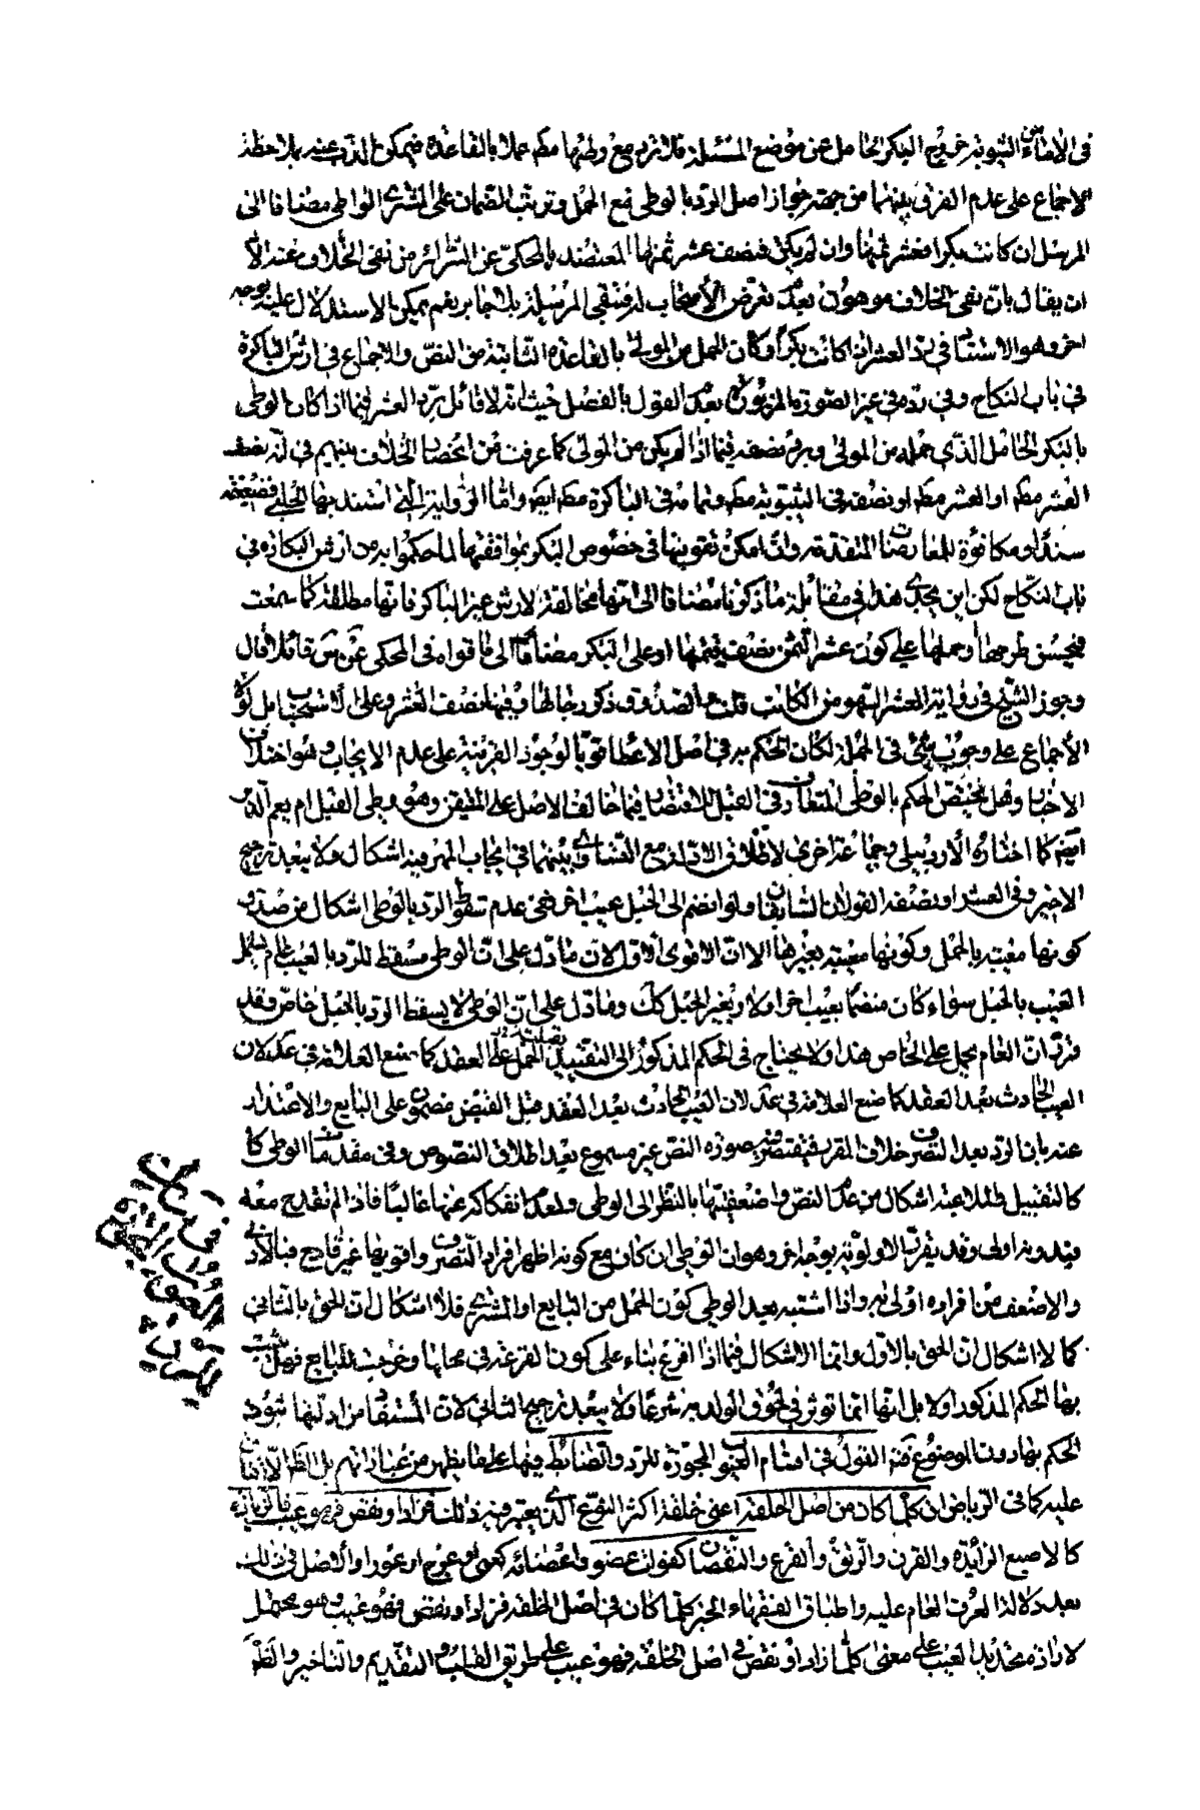 في الاماء الثيوبة خروج البكر الحامل عن موضع المسئلة فلا نزيد مع وطئها مط عملا بالقاعدة فيمكن الذب عنه بملاحظة
الاجماع على عدم الفرق بينهما من جهة جواز اصل الرد بالوطي مع الحمل وترتب الضمان على المشتري الواطي مضافا الى
المرسل ان كانت بكرا فعشر ثمنها وان لم يكن فنصف عشر ثمنها المعتضد بالمحكي عن السرائر من نفي الخلاف عنه الا
ان يقال بان نفي الخلاف موهون بعدم تعرض الأصحاب له فتبقى المرسلة بلا جابر نعم يمكن الاستدلال عليه بوجه
اخر وهو الاستناد في رد العشر اذا كانت بكرا وكان الحمل من المولى بالقاعدة الثابتة من النص والاجماع في ارش الباكرة
في باب النكاح وفي رده في غير الصورة المزبورة بعدم القول بالفصل حيث انه لا قائل برد العشر فيما اذا كان الوطي
بالبكر الحامل الذي حمله من المولى وبرد نصفه فيما اذا لم يكن من المولى كما عرفت من انحصار الخلاف بينهم في انه نصف
العشر مط او العشر مط او نصفه في الثيبوبة مط وتمامه في الباكرة مط ايض واما الرواية التي استند بها الحلي فضعيفة
سندا ومكافؤة للمعارضات المتقدمة وان امكن تقويتها في خصوص البكر بموافقتها لما حكموا به من ارش البكارة في
باب النكاح لكن اين يجدي هذا في مقابلة ما ذكرنا مضافا الى انها مخالفة لارش غير الباكر فانها مطلقة كما سمعت
فيحسن طرحها او حملها على كون عشر الثمن نصف قيمتها او على البكر مضافا الى ما قواه في المحكي عن س قائلا قال
وجوز الشيخ في رواية العشر السهو من الكاتب قلت الصدوق ذكر رجالها وفيها نصف العشر وعلى الاستحباب بل لولا
الأجماع على وجوب شيء في الجملة لكان الحكم به في اصل الاعطاء قويا لوجود القرينة على عدم الايجاب وهو اختلاف
الاخبار وهل يختص الحكم بالوطي المتعارف في القبل للاقتصار فيما خالف الاصل على المتيقن وهو وطي القبل ام يعم الدبر
ايض كما اختاره الأردبيلي وجماعة اخرى لاطلاق الادلة مع التساوي بينهما في ايجاب المهر فيه اشكال ولا يبعد ترجيح
الاخير وفي العشر او نصفه القولان السابقان ولو انضم الى الحبل عيب اخر ففي عدم سقوط الرد بالوطي اشكال من صدق
كونها معيبة بالحمل وكونها معيبة بغيرها الا ان الاقوى الاول لان ما دل على ان الوطي مسقط للرد بالعيب عام يشمل
العيب بالحبل سواء كان منضما بعيب اخر اولا وبغير الحبل كك وما دل على ان الوطي لا يسقط الرد بالحبل خاص وقد
قرر ان العام يحمل على الخاص هذا ولا يحتاج في الحكم المذكور الى التقييد بتقدم الحمل على العقد كما صنع العلامة في عد لان
العيب الحادث بعد العقد كما صنع العلامة في عد لان العيب الحادث بعد العقد قبل القبض مضمون على البايع والاعتذار
عنه بان الرد بعد التصرف خلاف المقرر فيقتصر فيه صورة النص غير مسموع بعد اطلاق النصوص وفي مقدمات الوطي كا
كالتقبيل والملاعبة اشكال من عدم النص واضعفيتها بالنظر الى الوطي ولعدم انفكاكه عنها غالبا فاذا لم تقدح معه
فبدونه اولى وقد يقرب الاولوية بوجه اخر وهو ان الوطي ان كان مع كونه اظهر افراد التصرف واقويها غير قادح فبالادنى
والاضعف من افراده اولى به واذا اشتبه بعد الوطي كون الحمل من البايع او المشتري فلا اشكال ان الحق بالثاني
كما لا اشكال ان الحق بالاول وانما الاشكال فيما اذا اقرع بناء على كون القرعة في محلها وخرجت للبايع فهل يثبت
بها الحكم المذكور اولا بل انها انما توثر في لحوق الولد به شرعا ولا يبعد ترجيح الثاني لان المستفاد من ادلتها ثبوت
الحكم بها دون الموضوع فيه القول في اقسام العيوب المجوزة للرد والضابط فيها على ما يظهر من عباراتهم بل الظ الاتفاق
عليه كما في الرياض ان كلما كان من اصل الخلقة اعني خلقة اكثر النوع الذي يعتبر فيه ذلك فزاد او نقص فهو عيب فالزيادة
كالاصبع الزائدة والقرن والرتق والقرع والنقصان كفوات عضو واعضائه كعمى او عرج او عور او الاصل في ذلك
بعد دلالة العرف العام عليه واطباق الفقهاء الخبر كلما كان في اصل الخلقة فزاد او نقص فهو عيب وهو محتمل
لارادة تحديد العيب على معنى كلما زاد او نقص في اصل الخلقة فهو عيب على طريق القلب او التقديم والتاخير والظ
في بيان
العيوب المجوزة